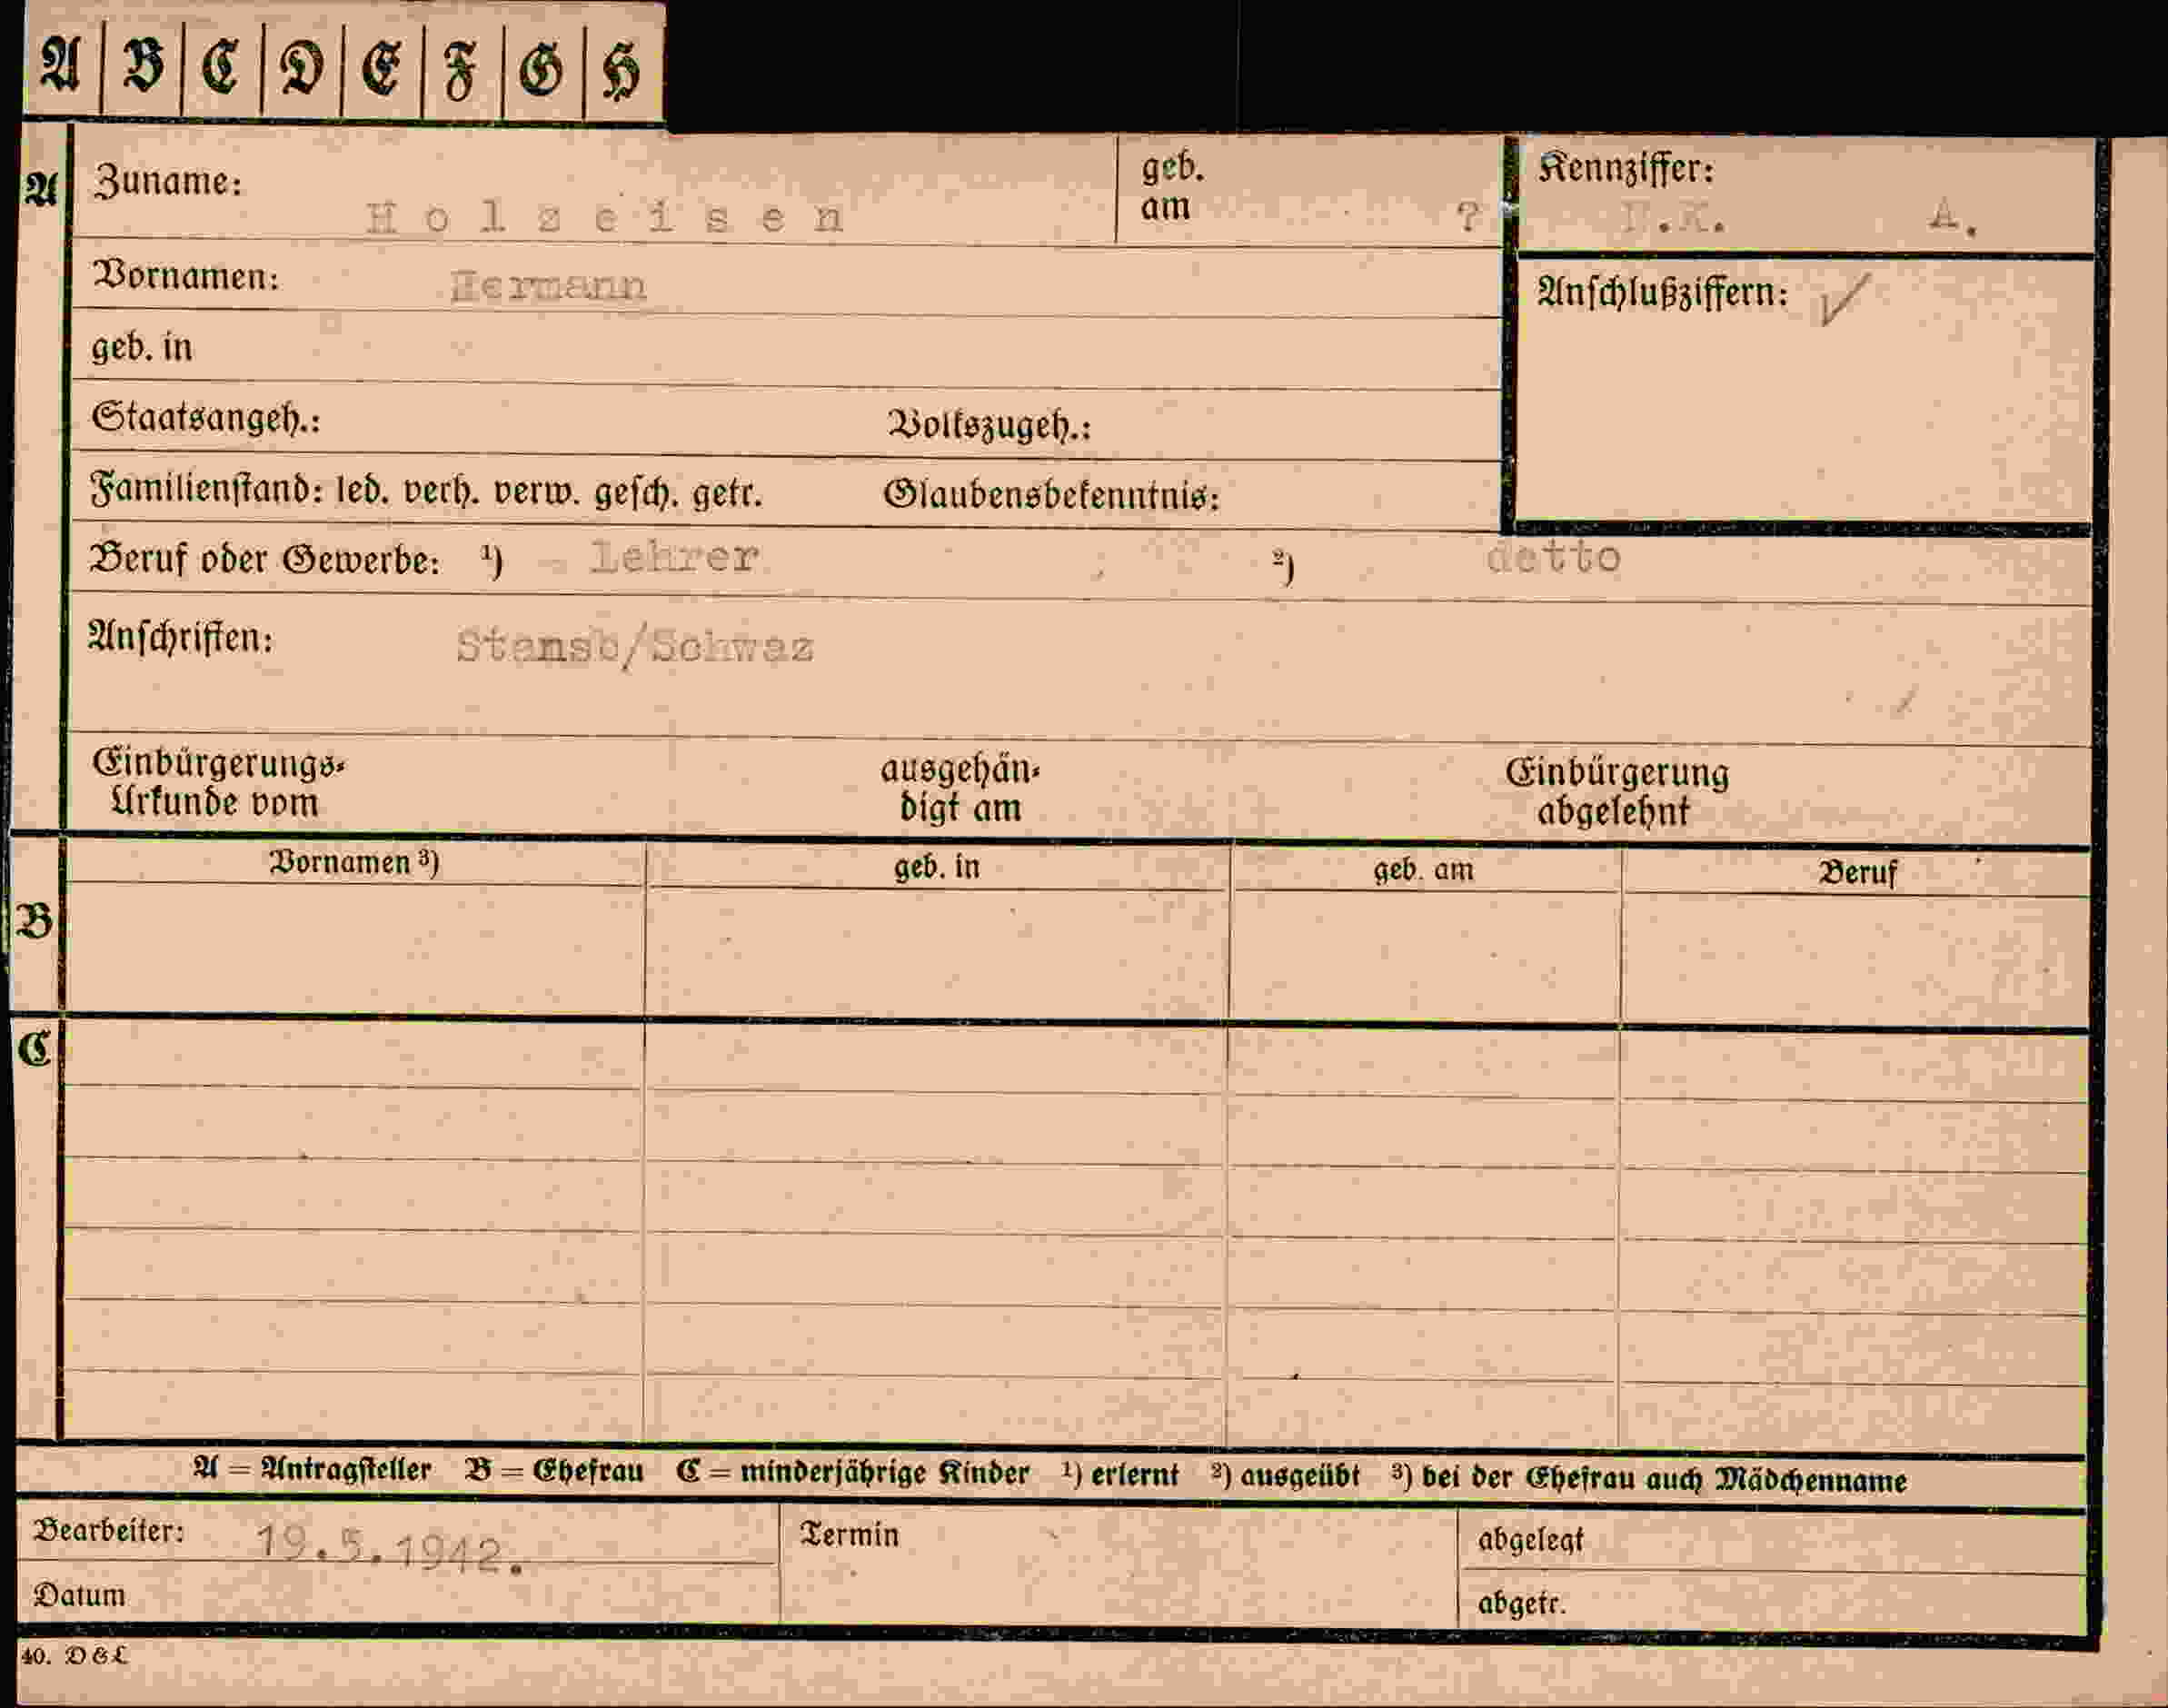 A B C D E F G H
A
Zuname: Holzeisen
geb. am ?
Kennziffer:
.K. A.
Vornamen: Hermann
Anschlußziffern: ✓
geb. in
Staatsangeh.: Volkszugeh.:
Familienstand: led. verh. verw. gesch. getr. Glaubensbekenntnis:
Beruf oder Gewerbe: ¹) Lehrer ²) detto
Anschriften: Stansb/Schwaz
Einbürgerungs-
Urkunde vom
ausgehän-
digt am
Einbürgerung
abgelehnt
B
Vornamen ³) geb. in geb. am Beruf
C
A = Antragsteller B = Ehefrau C = minderjährige Kinder ¹) erlernt ²) ausgeübt ³) bei der Ehefrau auch Mädchenname
Bearbeiter: 19.5.1942.
Datum
Termin
abgelegt
abgetr.
40. D & L